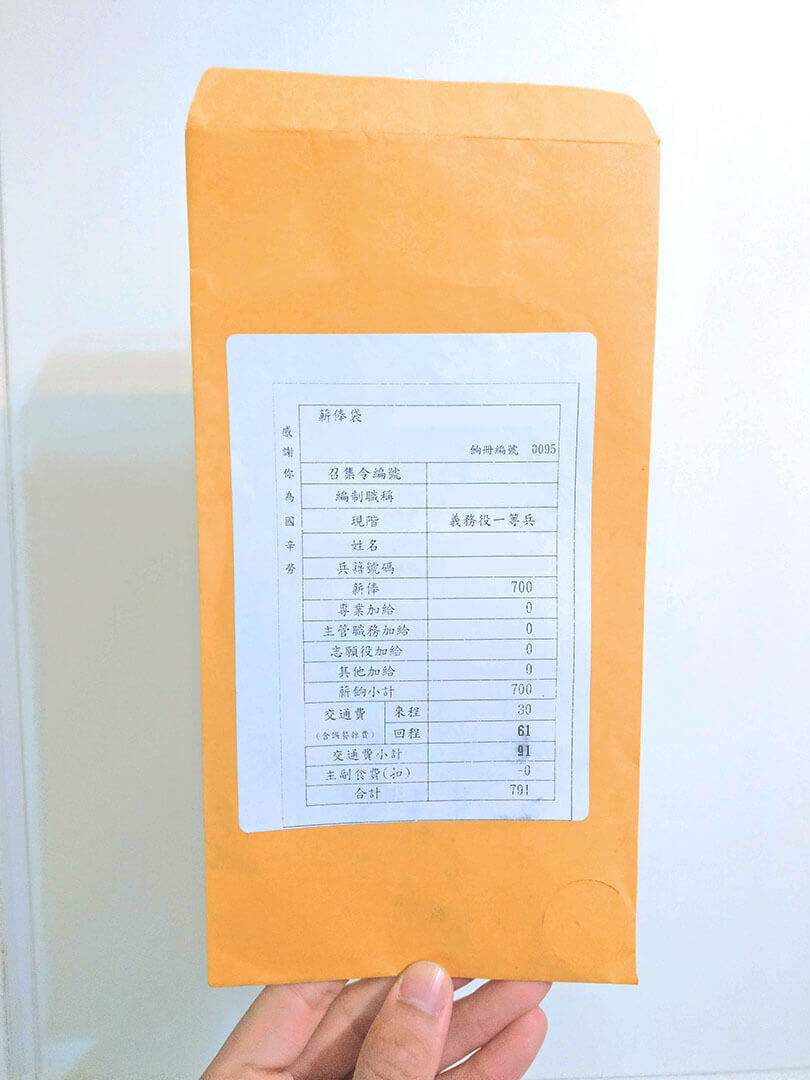 感謝你為國辛勞
薪俸袋
餉冊編號 0095
召集令編號
編制職稱
現階 義務役一等兵
姓名
兵籍號碼
薪俸 700
專業加給 0
主管職務加給 0
志願役加給 0
其他加給 0
薪餉小計 700
交通費 來程 30
(含誤餐雜費) 回程 61
交通費小計 91
主副食費(扣) -0
合計 791